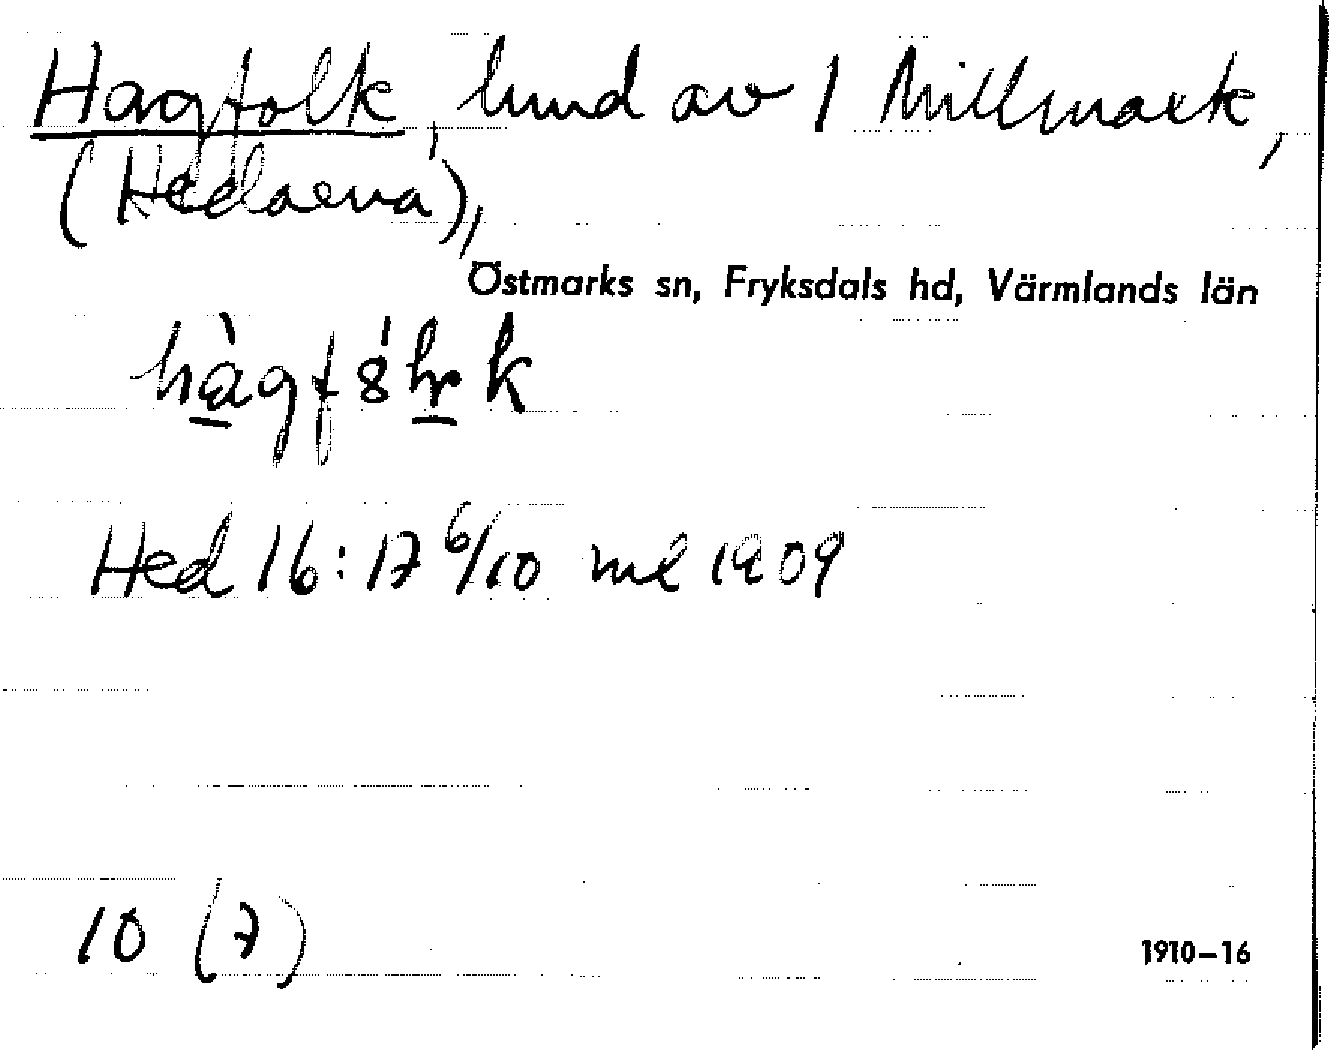 Hagfolk, lund av 1 Millmark,
(Hedarna),
Östmarks sn, Fryksdals hd, Värmlands län
Hed 16:17 6/10 me 1909
10 (7)
1910–16